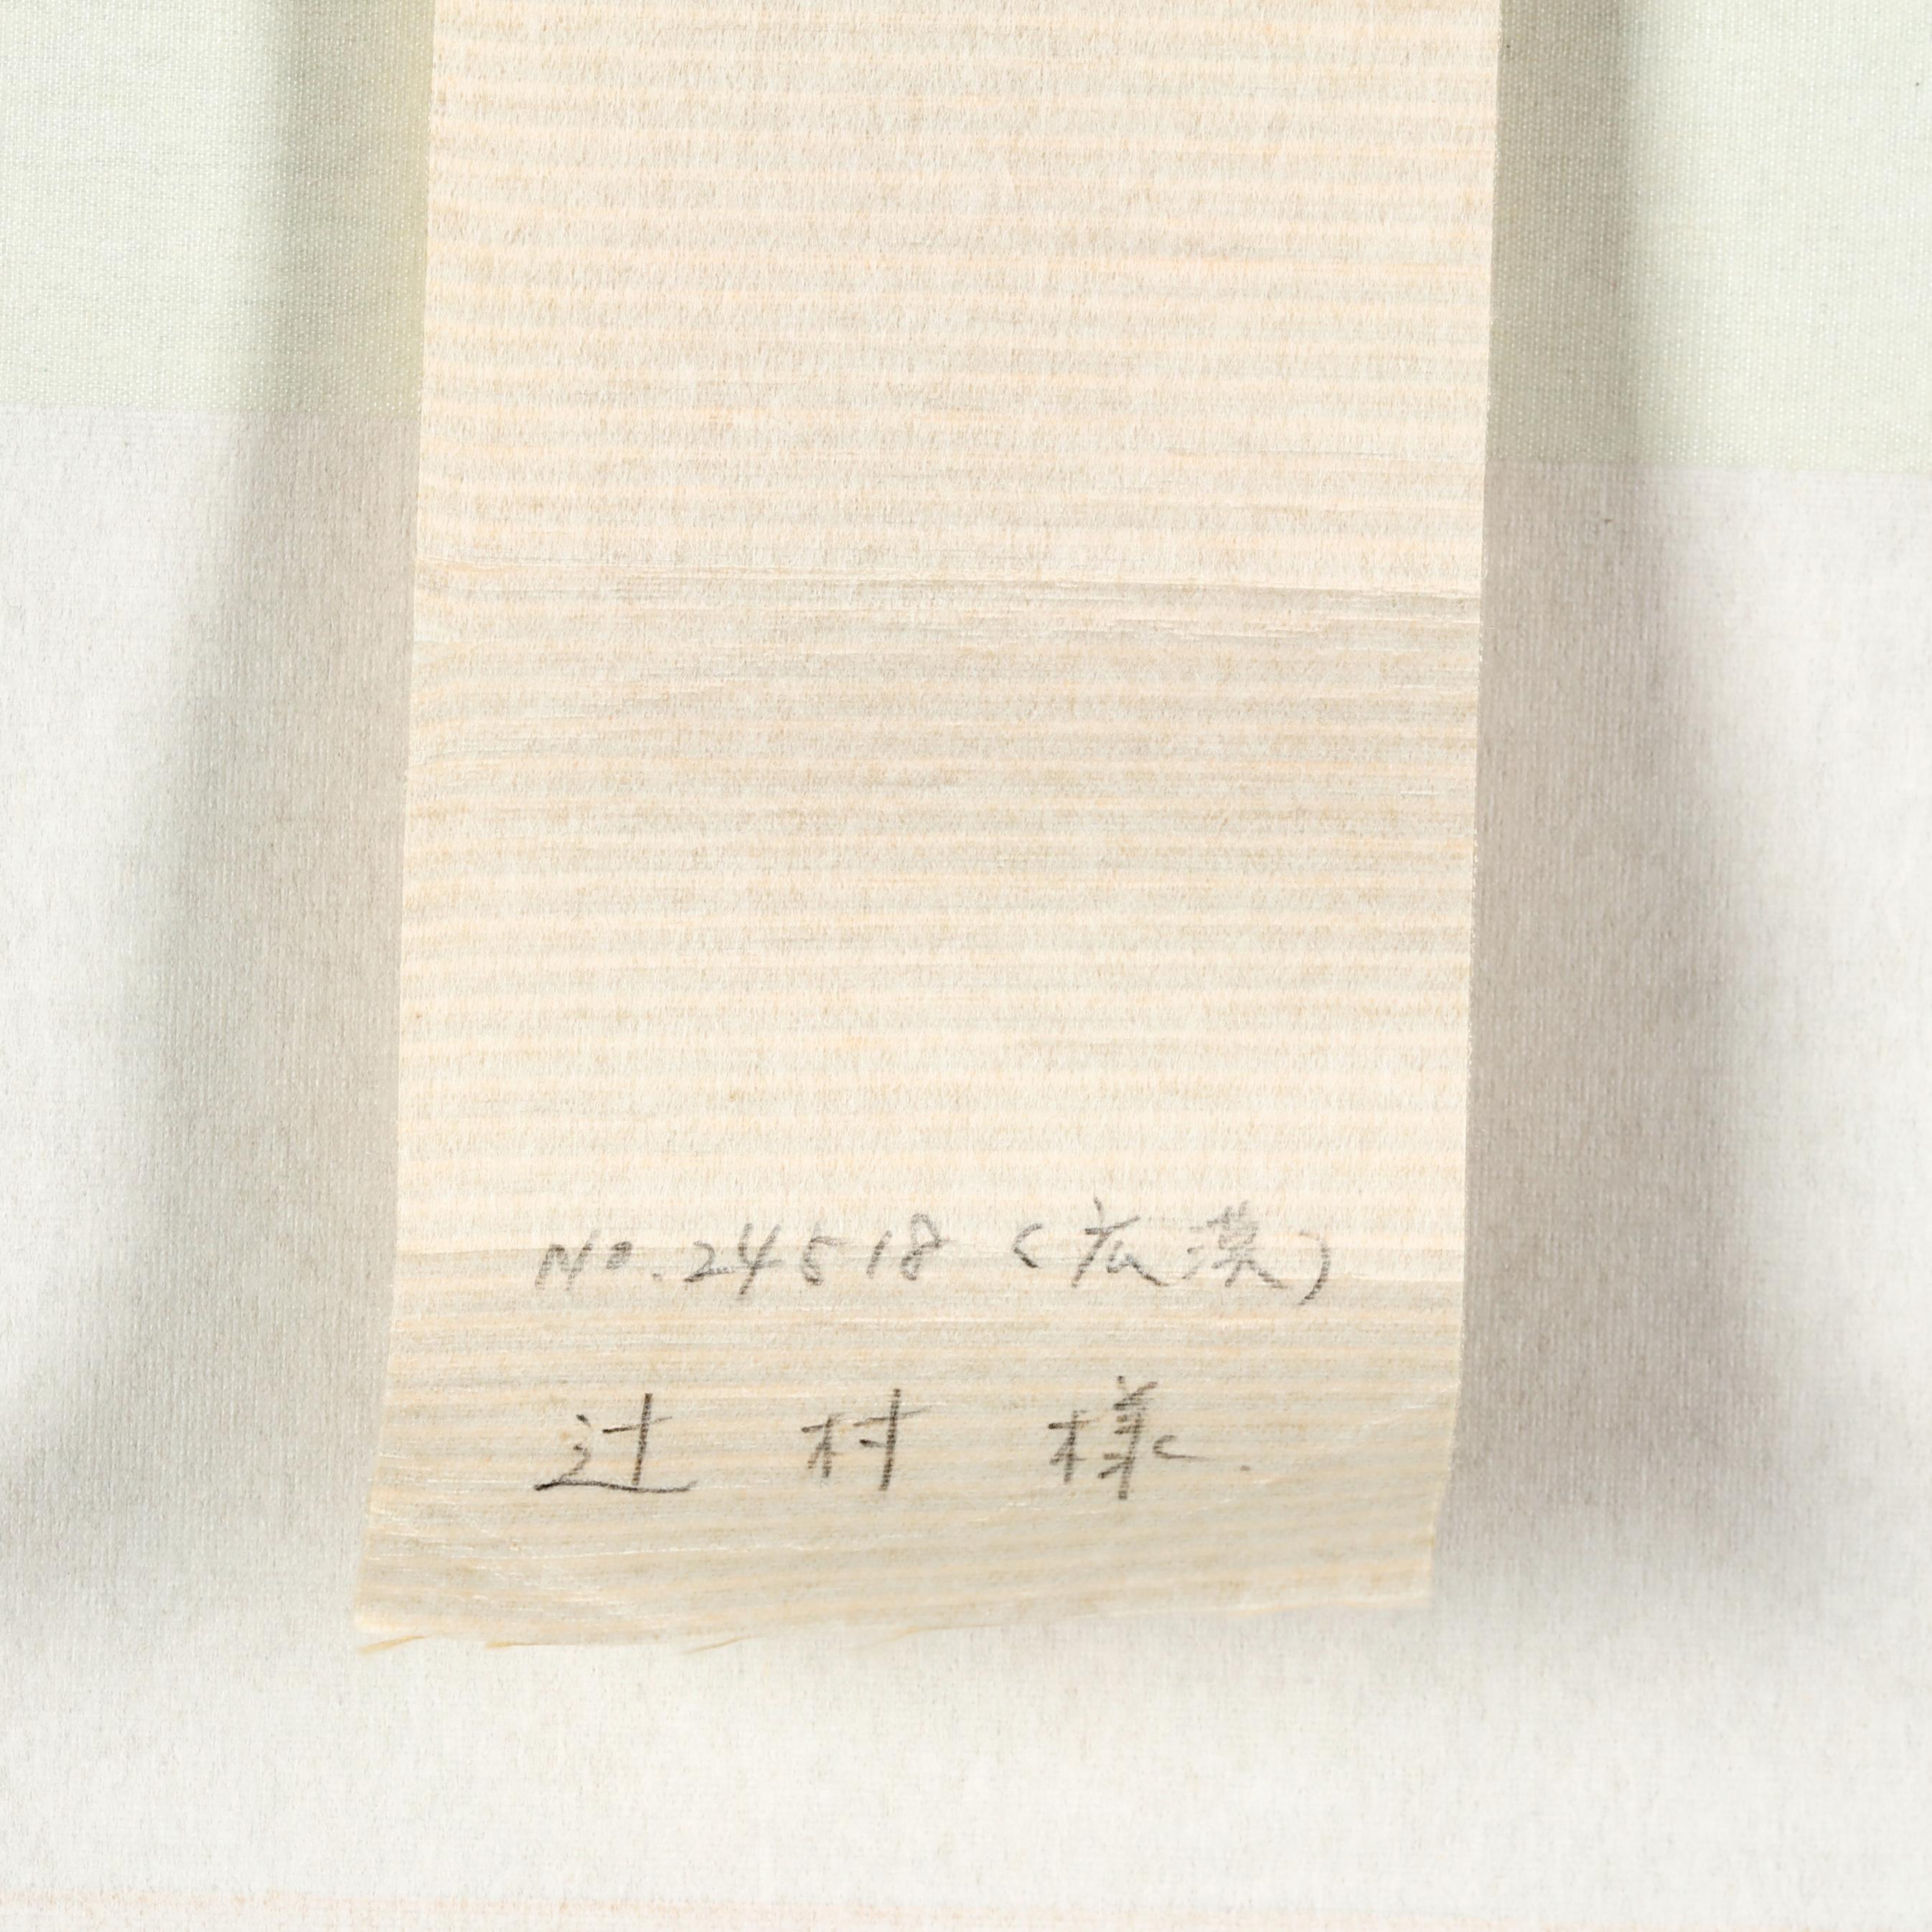 No.24518(広漠)
辻村様.